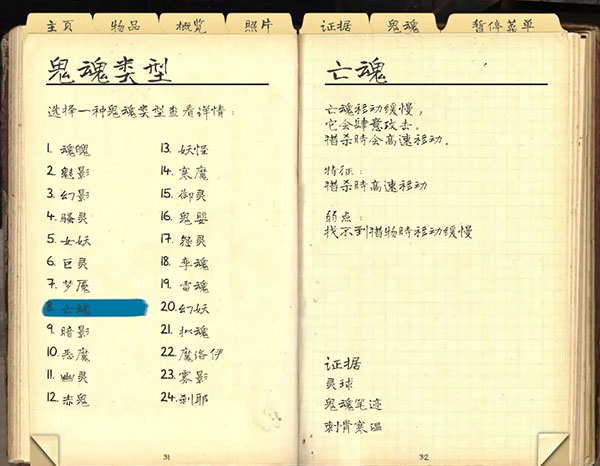 主页
物品
概览
照片
证据
鬼魂
暂停菜单
鬼魂类型
选择一种鬼魂类型查看详情：
1. 魂魄
2. 魅影
3. 幻影
4. 骚灵
5. 女妖
6. 巨灵
7. 梦魇
8. 亡魂
9. 暗影
10. 恶魔
11. 幽灵
12. 赤鬼
13. 妖怪
14. 寒魔
15. 御灵
16. 鬼婴
17. 怨灵
18. 孪魂
19. 雷魂
20. 幻妖
21. 拟魂
22. 魔洛伊
23. 雾影
24. 刹耶
31
亡魂
亡魂移动缓慢，
它会肆意攻击。
猎杀时会高速移动。
特征：
猎杀时高速移动
弱点：
找不到猎物时移动缓慢
证据
灵球
鬼魂笔迹
刺骨寒温
32